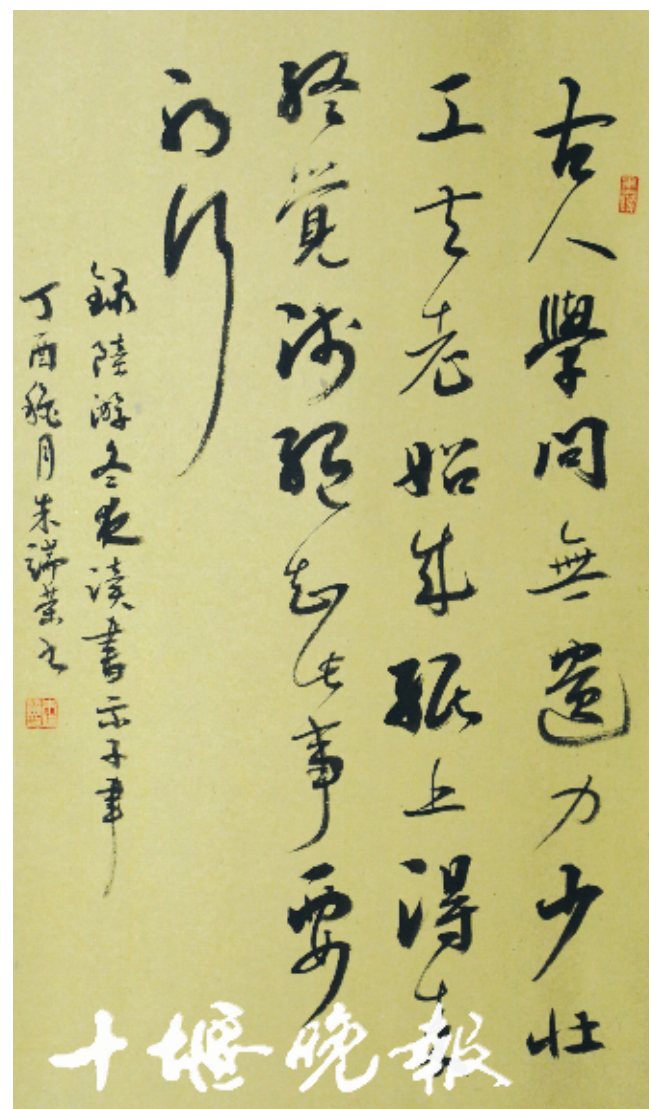 古人學問無遺力少壯
工夫老始成紙上得來
終覺淺絕知此事要
躬行
錄陸游冬夜讀書示子聿
丁酉月朱瑞榮书
十堰晚報